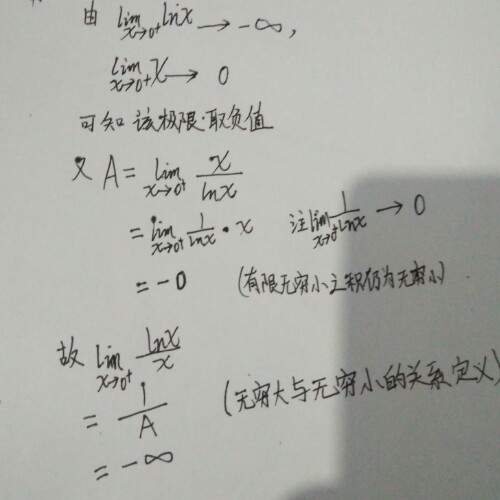 由 lim x→0⁺ lnx → -∞,
lim x→0⁺ x → 0
可知该极限取负值
又 A = lim x→0⁺ x/lnx
= lim x→0⁺ 1/lnx • x 注 lim x→0⁺ 1/lnx → 0
= -0 (有限无穷小之积仍为无穷小)
故 lim x→0⁺ lnx/x
= 1/A (无穷大与无穷小的关系定义)
= -∞